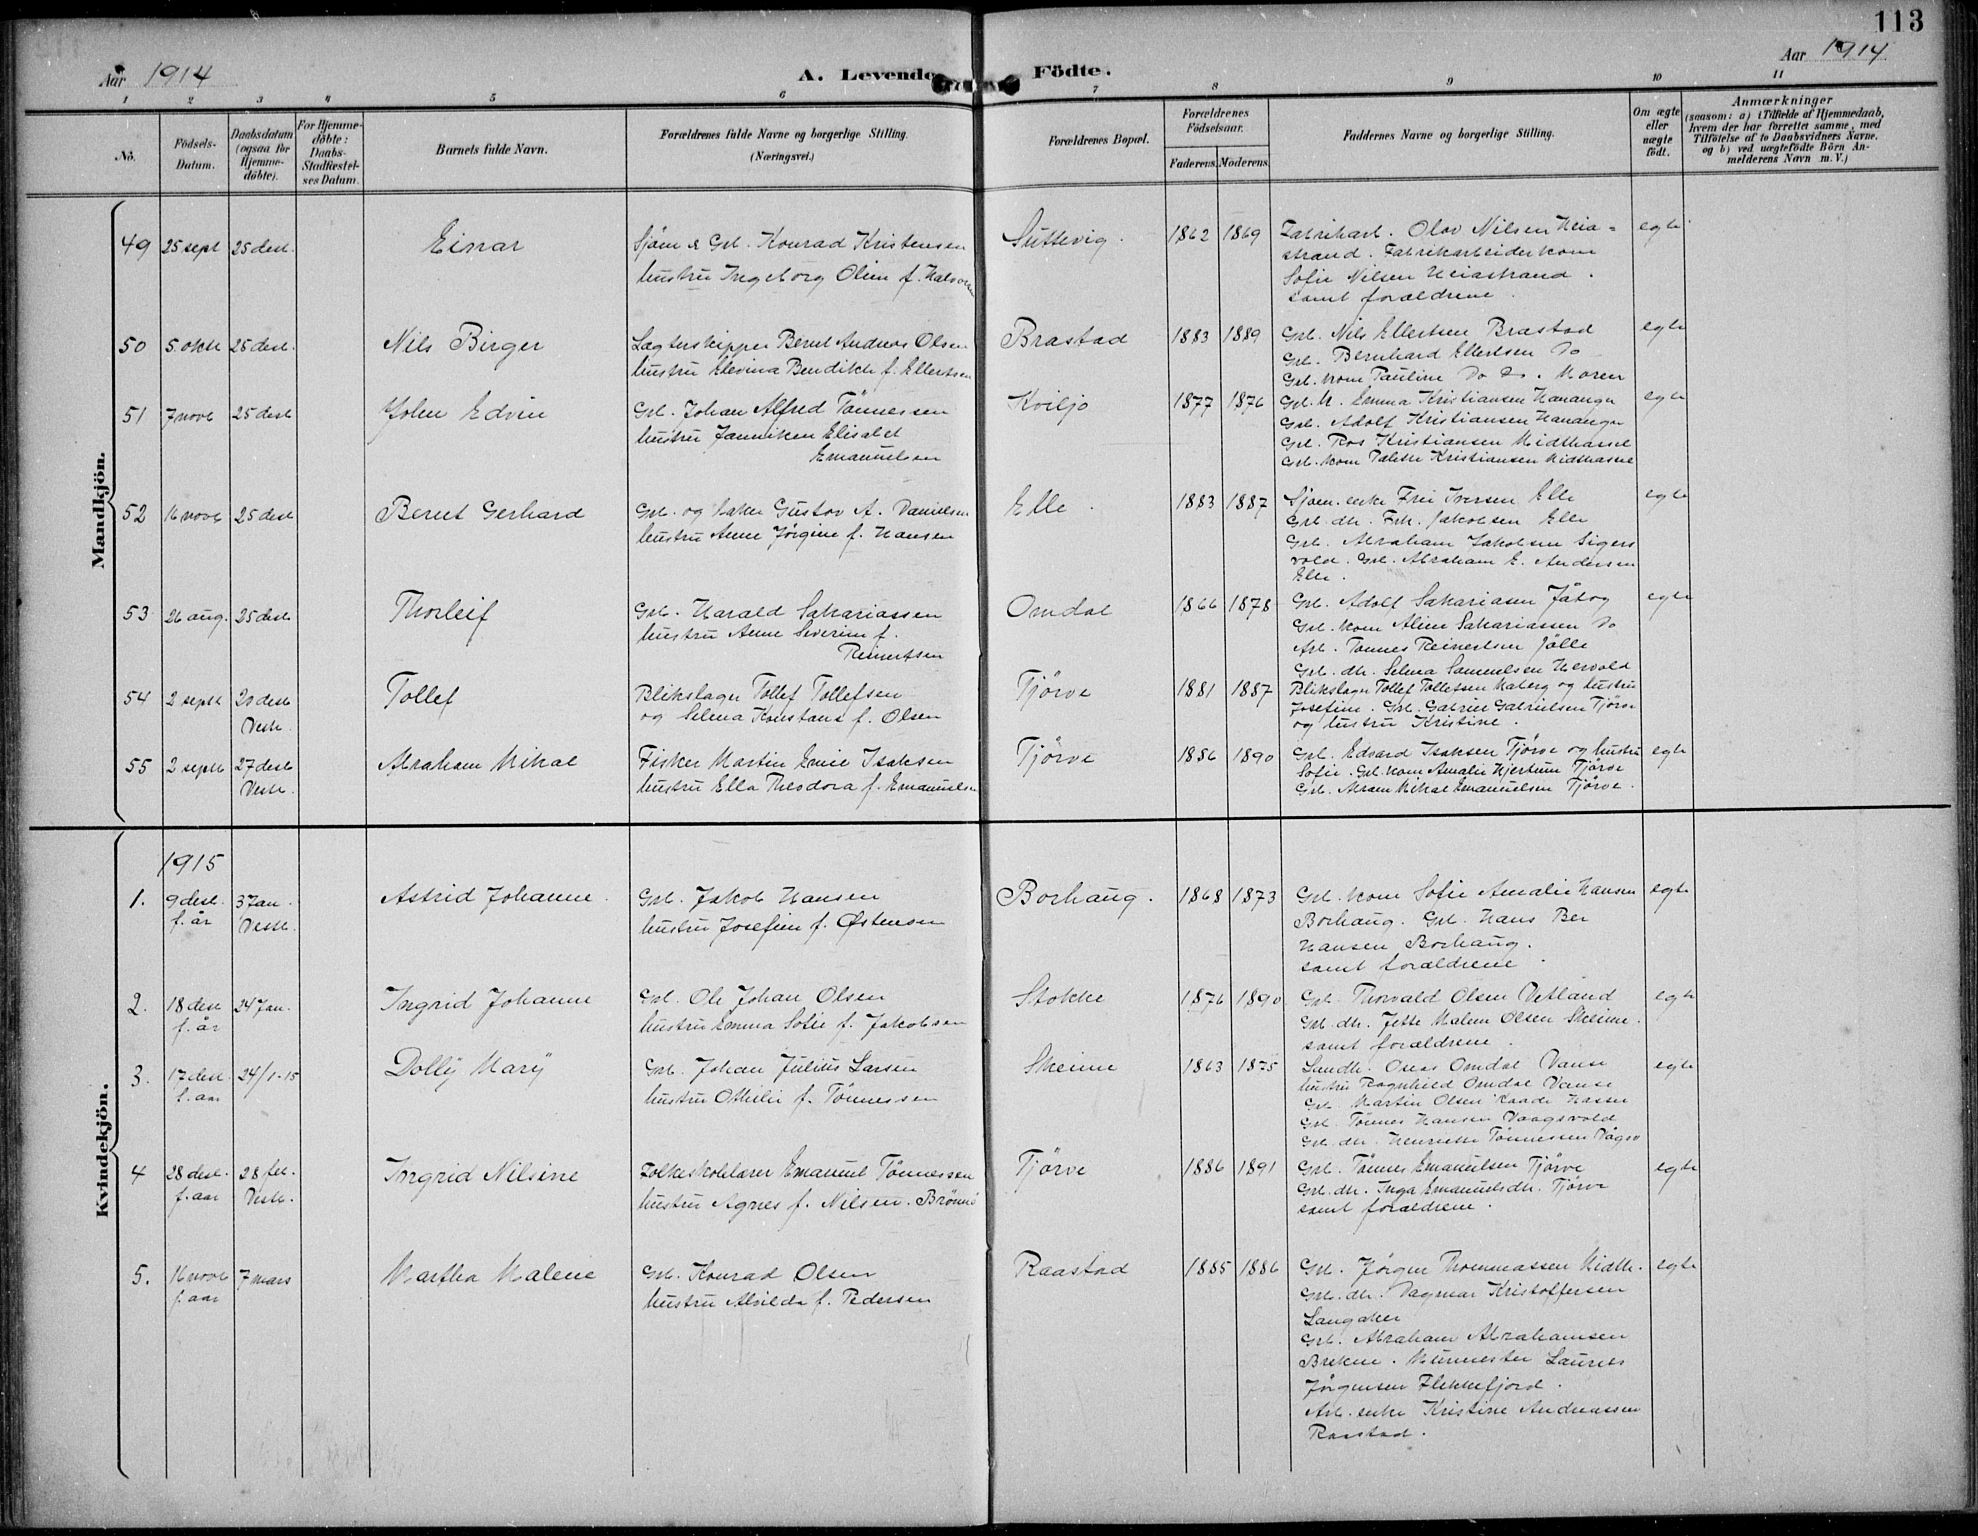 113
Aar 1914
A. Levende Födte.
Aar 1914
1 2 3 4 5 6 7 8 9 10 11
No.
Födsels-Datum.
Daabsdatum (ogsaa for Hjemme-döbte).
For Hjemme-döbte: Daabs-Stadfæstel-ses Datum.
Barnets fulde Navn.
Forældrenes fulde Navne og borgerlige Stilling.
(Næringsvei.)
Forældrenes Bopæl.
Forældrenes Födselsaar.
Faderens. Moderens.
Faddernes Navne og borgerlige Stilling.
Om ægte eller uægte födt.
Anmærkninger
(saasom: a) i Tilfælde af Hjemmedaab,
hvem der har forrettet samme, med
Tilföielse af to Daabsvidners Navne.
og b) ved uægtefödte Börn An-
melderens Navn m. V.)
Mandkjön.
49 25 sept 25 desb. Einar
Sjøm & Grb. Konrad Kristensen
hustru Ingeborg Oline f. Halvorsen
Suttevig. 1862 1869
Fabrikarb. Olav Nilsen Heia=
strand. Fabrikarbeiderkom
Sofie Nilsen Heiastrand.
samt forældrene.
egte
50 5. okt 25 desb. Nils Birger
Lægterskipper Bernt Andreas Olsen
hustru Elevina Bendikte f. Ellertsen
Brastad 1883 1889
Grb. Nils Ellertsen Brastad
Grb. Bernhard Ellertsen Do
Grb. kom Pauline Do Do. Maren
egte
51 7 novb 25 desb John Edvin
Grb. Johan Alfred Tønnessen
hustru Janniken Elisabet
Emanuelsen
Kviljo 1877 1876
Grb. k. Emma Kristiansen Hananger
Grb. Adolf Kristiansen Hananger
Grb. Ros Kristiansen Midthassel
Grb. kom Talette Kristiansen Midthassel
egte
52 16 novb 25 desb Bernt Gerhard
Grb. og baker Gustav A. Danielsen
hustru Anne Jørgine f. Hansen
Elle. 1883 1887
Sjøm. enke Iversen Elle
Grb. dtr. Frk. Jakobsen Elle
Grb. Abraham Jakobsen Sigers
vold. Grb. Abraham E. Andersen
Elle.
egte
53 26 aug. 25 desb Thorleif
Grb. Harald Sakariassen
hustru Anne Severine f.
Reinertsen
Omdal 1866 1878
Grb. Adolf Sakariasen Jåtog
Grb. kom Aline Sakariassen Do
Arb. Tønnes Reinertsen Jølle
Grb. dtr. Selma Samuelsen Hervold
egte
54 2 septb 20 desb Vestb. Tollef
Blikslager Tollef Tollefsen
og Selma Konstans f. Olsen
Tjørve 1881 1887
Blikslager Tollef Tollefsen Maberg og hustru
Josefine. Grb. Gabriel Gabrielsen Tjørve
og hustru Kristine.
55 2 septb 27 desb Vestb. Abraham Mikal
Fisker Martin Emil Isaksen
hustru Ella Theodora f. Emanuelsen
Tjørve 1886 1890
Grb. Edvard Isaksen Tjørve og hustru
Sofie. Grb. kom Amalie Hjertum Tjørve
Grb. Abram Mikal Emanuelsen Tjørve.
egte
Kvindekjön.
1915
1. 9 desb. f. år 3 Jan. Vestb. Astrid Johanne.
Grb. Jakob Hansen
hustru Josefine f. Østensen
Borhaug. 1868 1873
Grb. kom Sofie Amalie Hansen
Borhaug. Grb. Hans Ber
Hansen Borhaug.
samt forældrene.
egte
2. 18 des f. år 24 Jan. Ingrid Johanne
Grb. Ole Johan Olsen
hustru Emma Sofie f. Jakobsen
Stokke 1876 1890
Grb. Thorvald Olsen Vetland
Grb. dtr. Jette Malene Olsen Skeime.
samt forældrene.
egte
3. 17 desb. f. aar 24/1-15 Dolly Mary
Grb. Johan Julius Larsen
hustru Othilie f. Tønnessen
Skeime 1863 1875
Landh. Omdal Vanse
hustru Ragnhild Omdal Vanse
Grb. Martin Olsen Kaade Hassel
Grb. Tønnes Hansen Vaagsvold
Grb. dtr. Henriette Tønnessen Vågsv
egte
4 28 desb. f. aar 28 feb. Vestb. Ingrid Nilsine
Folkeskolelærer Emanuel Tønnessen
hustru Agnes f. Nilsen. Brønnø
Tjørve 1886 1891
Grb. Tønnes Emanuelsen Tjørve
Grb. dtr. Inga Emanuelsdtr. Tjørve
samt forældrene.
egte
5. 16 novb f. aar 7 mars Martha Malene
Grb. Konrad Olsen
hustru Alvilde f. Pedersen
Raastad 1885 1886
Grb. Jørgen Thommassen Midth.
Grb. dtr. Dagmar Kristoffersen
Langaker
Grb. Abraham Abrahamsen
Brekne. Murmester Laurits
Jørgensen Flekkefjord.
Arb. enke Kristine Andreassen
Raastad.
egte